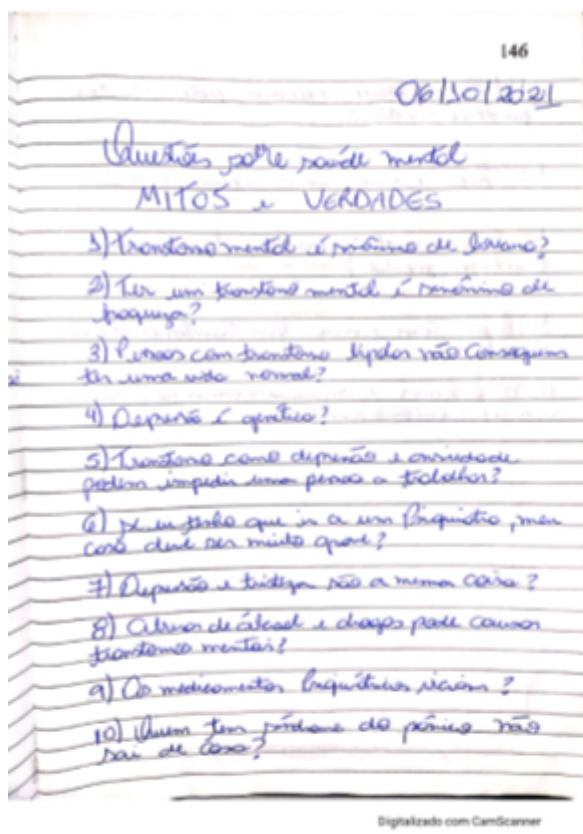 146
06/10/2021
Questões sobre saúde mental
MITOS e VERDADES
1) Transtorno mental é sinônimo de loucura?
2) Ter um transtorno mental é sinônimo de
fraqueza?
3) Pessoas com transtorno bipolar não conseguem
ter uma vida normal?
4) Depressão é genética?
5) Transtorno como depressão e ansiedade
podem impedir uma pessoa a trabalhar?
6) Se eu tenho que ir a um Psiquiatra, meu
caso deve ser muito grave?
7) Depressão e tristeza são a mesma coisa?
8) Abuso de álcool e drogas pode causar
transtornos mentais?
9) Os medicamentos viciam?
10) Quem tem síndrome do pânico não
sai de casa?
Digitalizado com CamScanner